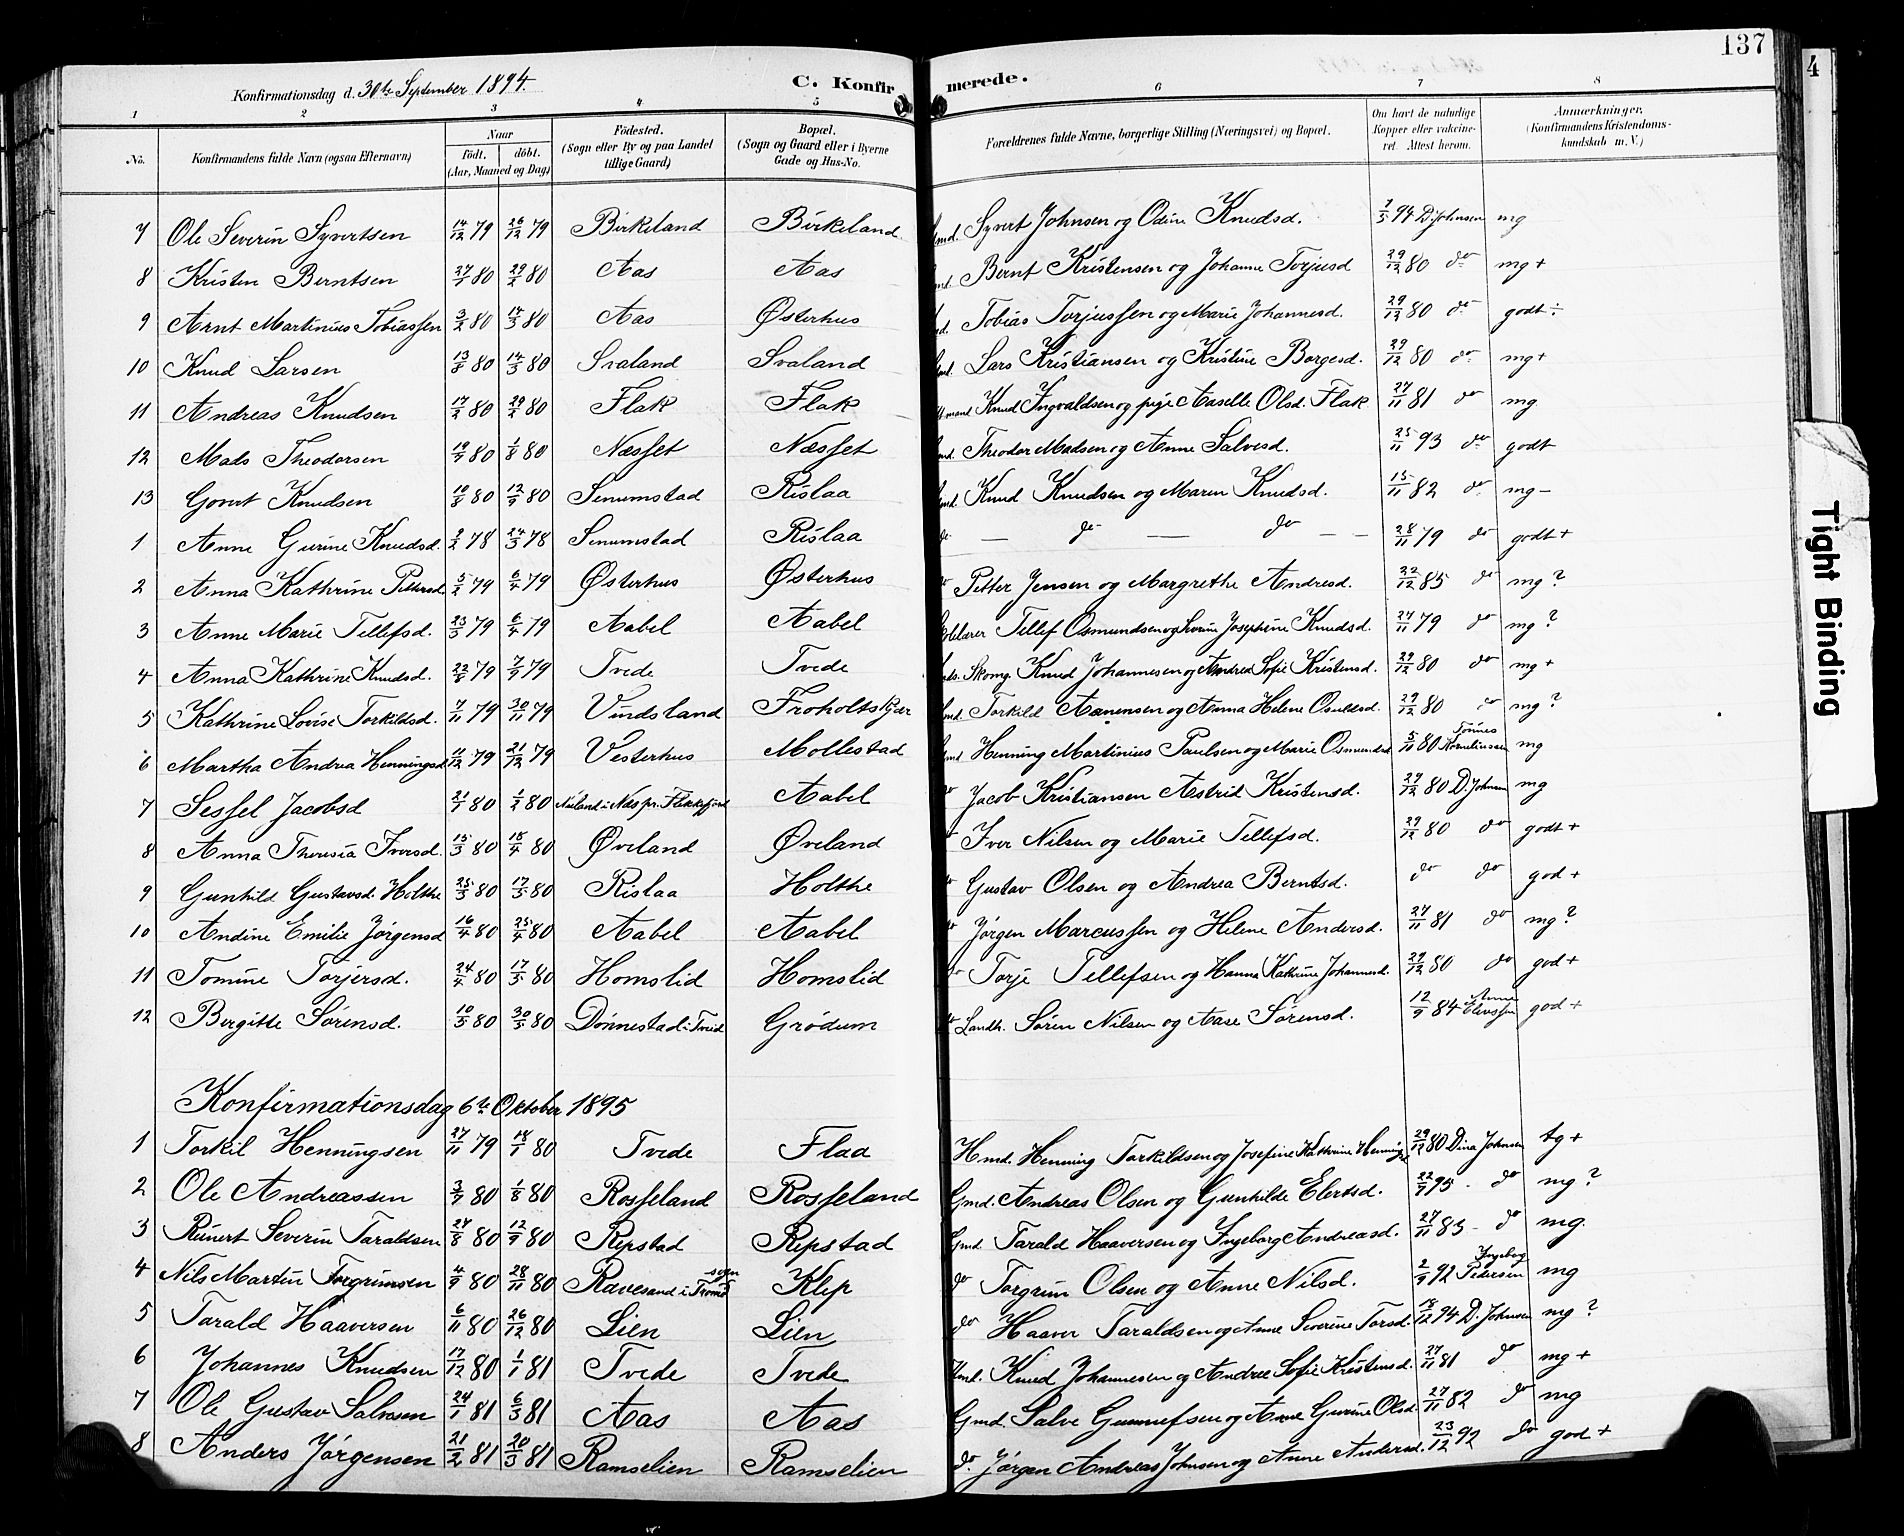 137
4
Tight Binding
Konfirmationsdag d. 30te September 1894. C. Konfirmerede.
1 2 3 4 5 6 7 8
No. Konfirmandens fulde Navn (ogsaa Efternavn) Naar födt. döbt. (Aar, Maaned og Dag) Födested. (Sogn eller By og paa Landet tillige Gaard) Bopæl. (Sogn og Gaard eller i Byerne Gade og Hus-No. Forældrenes fulde Navne, borgerlige Stilling (Næringsvei) og Bopæl. Om havt de naturlige Kopper eller vakcineret. Attest herom. Anmærkninger. (Konfirmandens Kristendomskundskab m. V.)
7 Ole Severin Syvertsen 14/12 79 26/12 79 Birkeland Birkeland Gmd. Syvert Johnsen og Odine Knudsd. 7/5 94 D. Johnsen mg
8 Kristen Berntsen 27/1 80 29/2 80 Aas Aas Bernt Kristensen og Johanne Torjusd 29/12 80 do mg+
9 Arnt Martinius Tobiassen 3/2 80 14/3 80 Aas Østerhus Tobias Torjussen og Marie Johannesd. 29/12 80 do godt÷
10 Knud Larsen 13/2 80 14/3 80 Svaland Svaland Gmd. Lars Kristiansen og Kristine Borgesd. 29/12 80 do mg+
11 Andreas Knudsen 17/2 80 29/2 80 Flak Flak Knud Ingvaldsen og pige Aaselle Olsd. Flak 27/11 81 do mg
12 Mads Theodorsen 19/7 80 1/8 80 Næsset Næsset Theodor Madsen og Anne Salvesd. 25/11 93 do godt
13 Gorut Knudsen 10/8 80 12/9 80 Senumstad Rislaa Gmd. Knud Knudsen og Maren Knudsd. 15/11 82 do mg-
1 Anne Gurine Knudsd. 2/2 78 24/3 78 Senumstad Rislaa do — do — do — — 28/11 79 do godt+
2 Anna Kathrine Pettersd. 5/2 79 6/4 79 Østerhus Østerhus do Petter Jensen og Margrethe Andresd. 22/12 85 do mg?
3 Anne Marie Tellefsd. 23/3 79 6/4 79 Aabel Aabel Tellef Osmundsen og Severine Josephine Knudsd. 27/11 79 do mg?
4 Anna Kathrine Knudsd. 22/8 79 7/9 79 Tvede Tvede Skomg. Knud Johannesen og Andrea Sofie Kristensd. 29/12 80 do mg+
5 Kathrine Lovise Torkildsd. 7/11 79 30/11 79 Vindsland Froholtskjær Gmd. Torkild Aanensen og Anna Helene Osuldsd. 29/12 80 do mg?
6 Martha Andrea Henningsd. 11/12 79 21/12 79 Vesterhus Mollestad Gmd Henning Martinius Paulsen og Marie Osmundsd 5/11 80 Tönnes Korneliussen mg
7 Sessel Jacobsd 21/1 80 1/2 80 Nuland i Næs pr. Flekkefjord Aabel do Jacob Kristiansen Astrid Kristensd. 29/12 80 D. Johnsen mg
8 Anna Theresia Iversd. 15/3 80 18/4 80 Øveland Øveland do Iver Nilsen og Marie Tellefsd. 29/12 80 do godt+
9 Gunhild Gustavsd. Holthe 25/3 80 17/5 80 Rislaa Holthe do Gustav Olsen og Andrea Berntsd. do do god+
10 Andine Emilie Jørgensd 16/4 80 25/4 80 Aabel Aabel do Jørgen Marcussen og Helene Andersd. 27/11 81 do mg?
11 Tomine Torjersd. 24/4 80 17/5 80 Homslid Homslid do Torje Tellefsen og Hanna Kathrine Johannesd. 29/12 80 do god+
12 Bergitte Sørensd. 10/5 80 30/5 80 Dønnestad i Tveid Grödum do Landh. Søren Nilsen og Aase Sørensd. 12/9 84 Anne Elevssen god+
Konfirmationsdag 6te Oktober 1895
1 Torkil Henningsen 27/11 79 18/1 80 Tvede Flaa Hmd. Henning Torkildsen og Josefine Kathrine Henningsd 29/12 80 Dina Johnsen tg+
2 Ole Andreassen 3/7 80 1/8 80 Rosseland Rosseland Gmd. Andreas Olsen og Gunhilde Elertsd. 22/7 95. do mg?
3 Reinert Severin Taraldsen 24/8 80 12/9 80 Repstad Repstad Gmd. Tarald Haaversen og Ingeborg Andreasd. 27/11 83 - do mg.
4 Nils Martin Torgrimsen 4/9 80 28/11 80 Ravesand i Tromö sogn Klep do Torgrim Olsen og Anne Nilsd. 2/9 92 Ingeborg Pedersen mg
5 Tarald Haaversen 6/11 80 26/12 80 Lien Lien do Haaver Taraldsen og Anne Severine Torsd. 18/12 94 D. Johnsen mg?
6 Johannes Knudsen 17/12 80 1/1 81 Tvede Tvede Hmd. Knud Johannesen og Andrea Sofie Kristensd. 27/11 81 do mg+
7 Ole Gustav Salvesen 24/1 81 6/3 81 Aas Aas Gmd. Salve Gunnufsen og Anne Gurine Olsd. 27/11 82 do mg
8 Anders Jörgensen 21/2 81 20/3 81 Ramselien Ramselien do. Jörgen Andreas Johnsen og Anne Andersd. 23/12 92 do god+